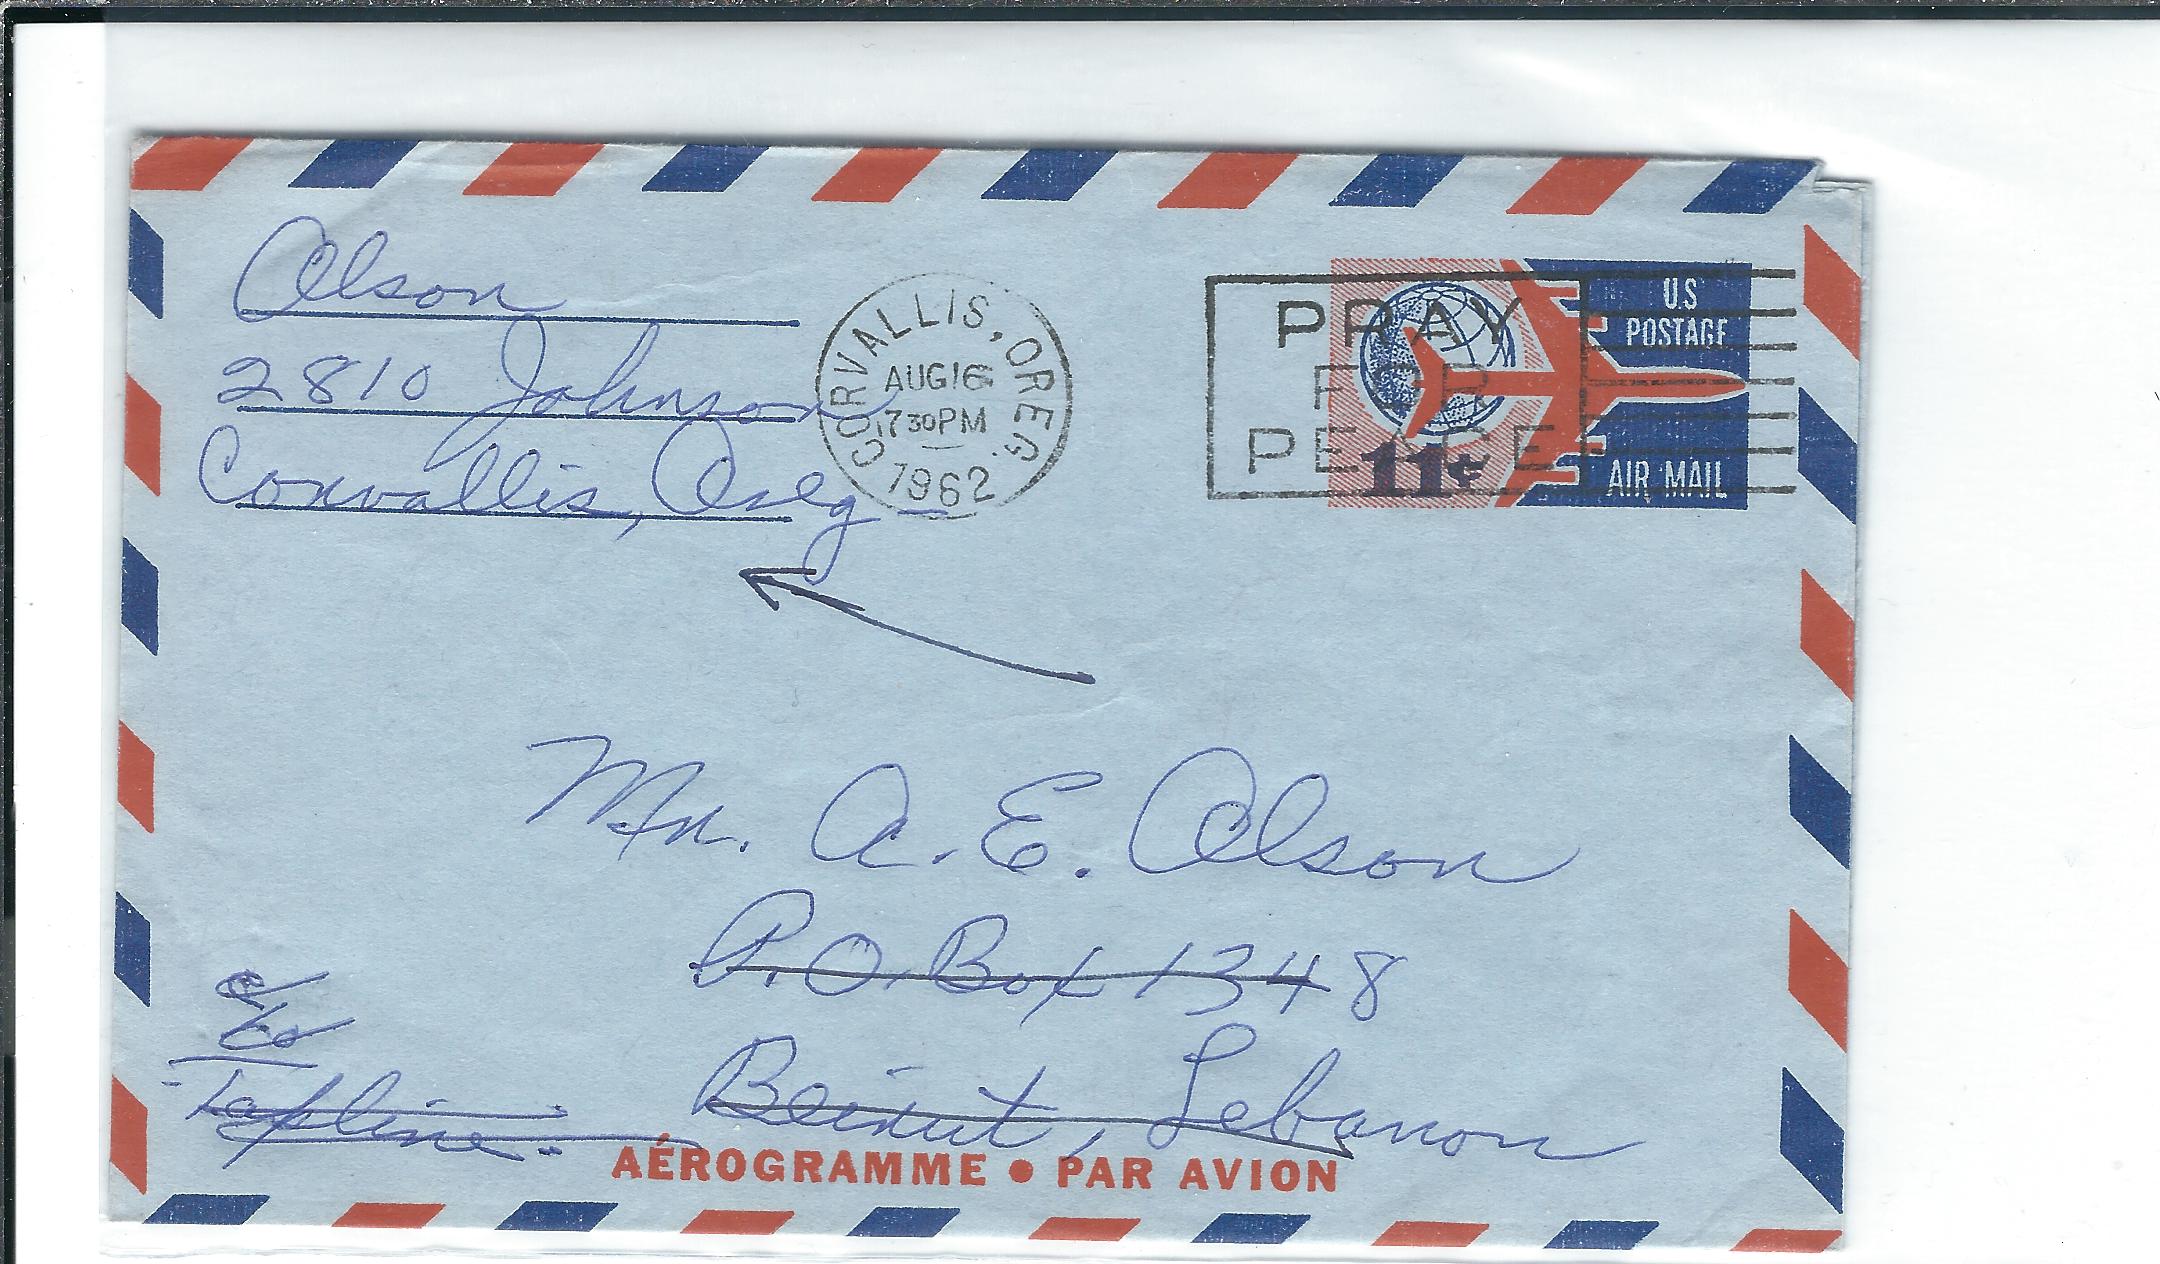 Olson
2810 Johnson
Corvallis, Oreg
CORVALLIS, OREG.
AUG 16
7 30 PM
1962
PRAY
FOR
PEACE
U.S
POSTAGE
11¢
AIR MAIL
Mr. A. E. Olson
P.O. Box 1348
Beirut, Lebanon
Tapline
AÉROGRAMME • PAR AVION